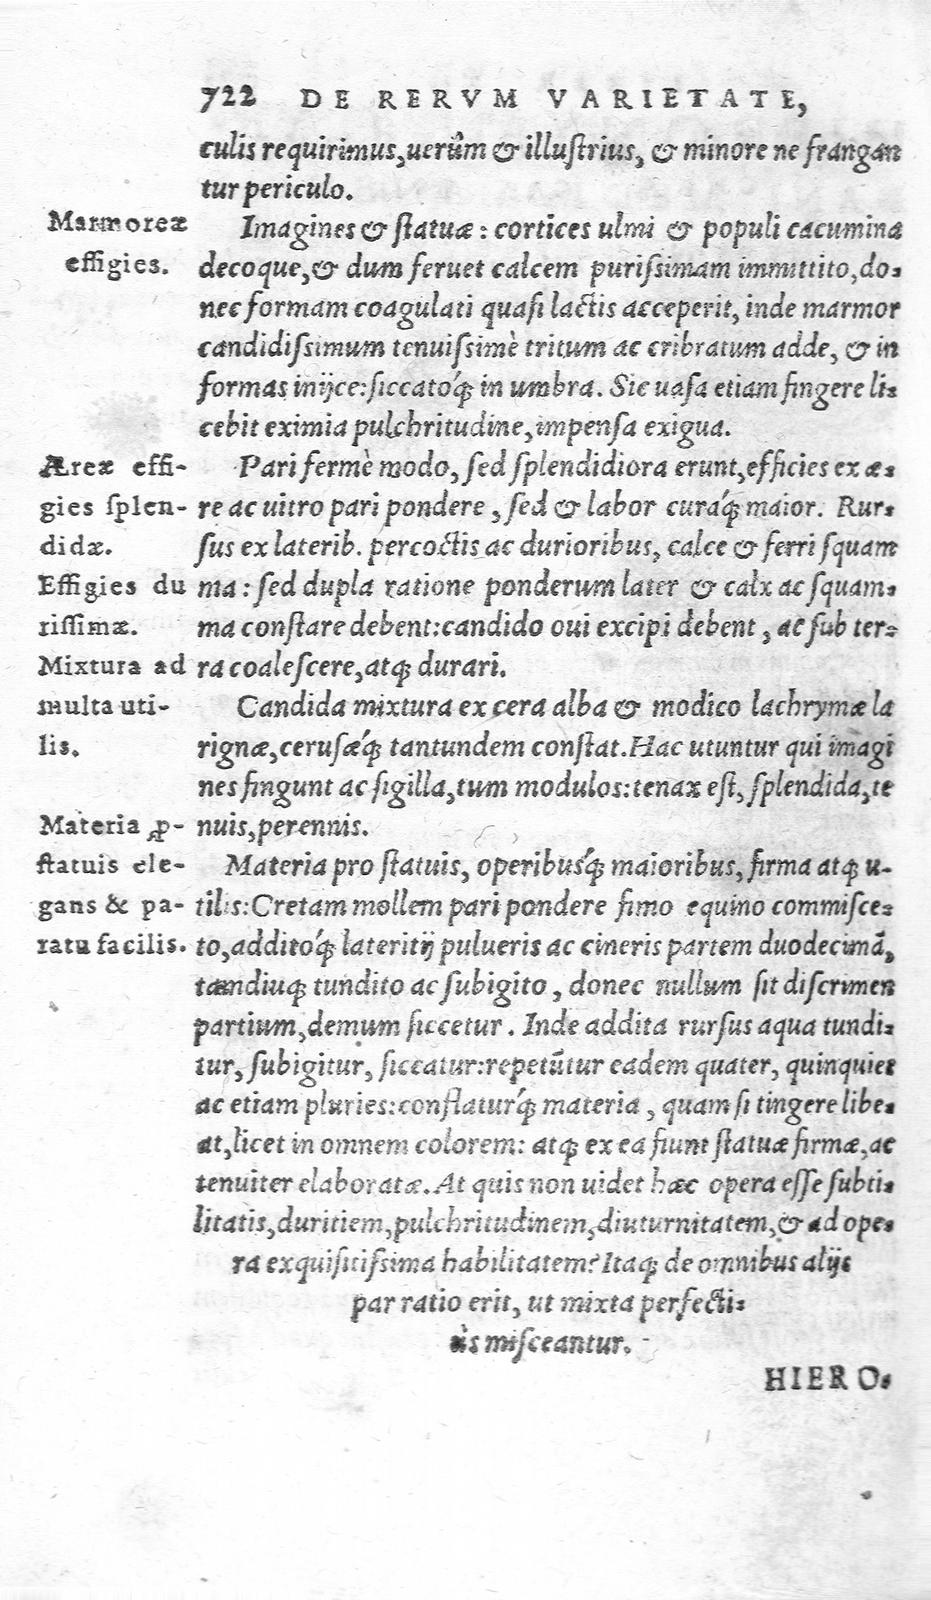 722 DE RERVM VARIETATE,
culis requirimus, uerûm & illuſtrius, & minore ne frangan
tur periculo.
Marmoreæ
effigies.
Imagines & ſtatuæ: cortices ulmi & populi cacumina
decoque, & dum feruet calcem puriſsimam immittito, do-
nec formam coagulati quaſi lactis acceperit, inde marmor
candidiſsimum tenuiſsimè tritum ac cribratum adde, & in
formas inijce: ſiccatóq́ꝫ in umbra. Sic uaſa etiam fingere li-
cebit eximia pulchritudine, impenſa exigua.
Æreæ effi-
gies ſplen-
didæ.
Pari fermè modo, ſed ſplendidiora erunt, efficies ex æ-
re ac uitro pari pondere, ſed & labor curáq́ꝫ maior. Rur-
ſus ex laterib. percoctis ac durioribus, calce & ferri ſquam
Effigies du
riſſimæ.
ma: ſed dupla ratione ponderum later & calx ac ſquam-
ma conſtare debent: candido oui excipi debent, ac ſub ter-
ra coaleſcere, atqꝫ durari.
Mixtura ad
multa uti-
lis.
Candida mixtura ex cera alba & modico lachrymæ la
rignæ, ceruſǽq́ꝫ tantundem conſtat. Hac utuntur qui imagi
nes fingunt ac ſigilla, tum modulos: tenax eſt, ſplendida, te
nuis, perennis.
Materia ꝓ-
ſtatuis ele-
gans & pa-
ratu facilis.
Materia pro ſtatuis, operibuſq́ꝫ maioribus, firma atqꝫ u-
tilis: Cretam mollem pari pondere fimo equino commiſce-
to, additóq́ꝫ lateritij pulueris ac cineris partem duodecimã,
tamdiuqꝫ tundito ac ſubigito, donec nullum ſit diſcrimen
partium, demum ſiccetur. Inde addita rurſus aqua tundi-
tur, ſubigitur, ſiccatur: repetũtur eadem quater, quinquies
ac etiam pluries: conflaturq́ꝫ materia, quam ſi tingere libe-
at, licet in omnem colorem: atqꝫ ex ea fiunt ſtatuæ firmæ, ac
tenuiter elaboratæ. At quis non uidet hæc opera eſſe ſubti-
litatis, duritiem, pulchritudinem, diuturnitatem, & ad ope-
ra exquiſitiſsima habilitatem? Itaqꝫ de omnibus alijs
par ratio erit, ut mixta perfecti-
ùs miſceantur.
HIERO-